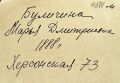 Буличина
Марья Дмитриевна
1888 г.
Херсонская 73